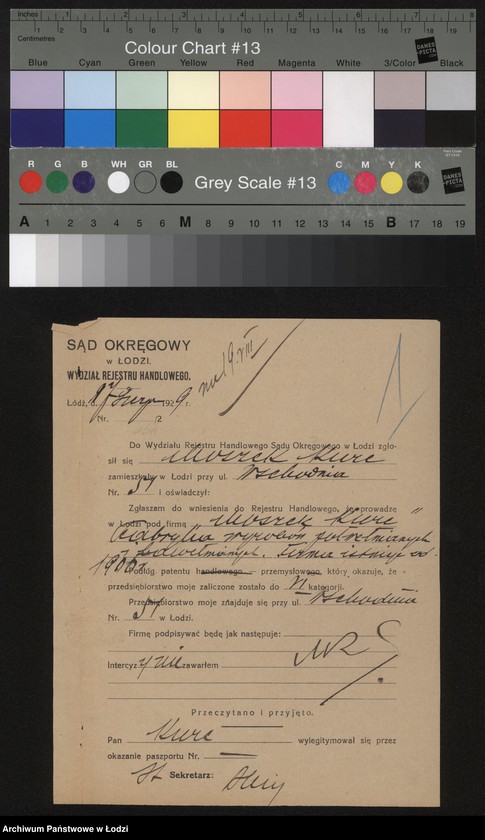 Inches 1 2 3 4 5 6 7 8
Centimetres 1 2 3 4 5 6 7 8 9 10 11 12 13 14 15 16 17 18 19
Colour Chart #13
DANES-PICTA
Blue Cyan Green Yellow Red Magenta White 3/Color Black
R G B WH GR BL Grey Scale #13 C M Y K
DANES-PICTA
A 1 2 3 4 5 6 M 8 9 10 11 12 13 14 15 B 17 18 19
SĄD OKRĘGOWY
w ŁODZI.
WYDZIAŁ REJESTRU HANDLOWEGO.
Łódź, d. 192 9 r.
Nr. /2
Do Wydziału Rejestru Handlowego Sądu Okręgowego w Łodzi zgło-
sił się Moszek Kurc
zamieszkały w Łodzi przy ul. Wschodnia
Nr. 51 i oświadczył:
Zgłaszam do wniesienia do Rejestru Handlowego, że prowadzę
w Łodzi pod firmą „Moszek Kurc"
wyrobów półwełnianych
Firma istnieje od
1900 r. Podług patentu handlowego – przemysłowego, który okazuje, że
przedsiębiorstwo moje zaliczone zostało do VI kategorji.
Przedsiębiorstwo moje znajduje się przy ul. Wschodnia
Nr. 51 w Łodzi.
Firmę podpisywać będę jak następuje:
Intercyzy nie zawarłem
Przeczytano i przyjęto.
Pan Kurc wylegitymował się przez
okazanie paszportu Nr. —
St Sekretarz:
Archiwum Państwowe w Łodzi